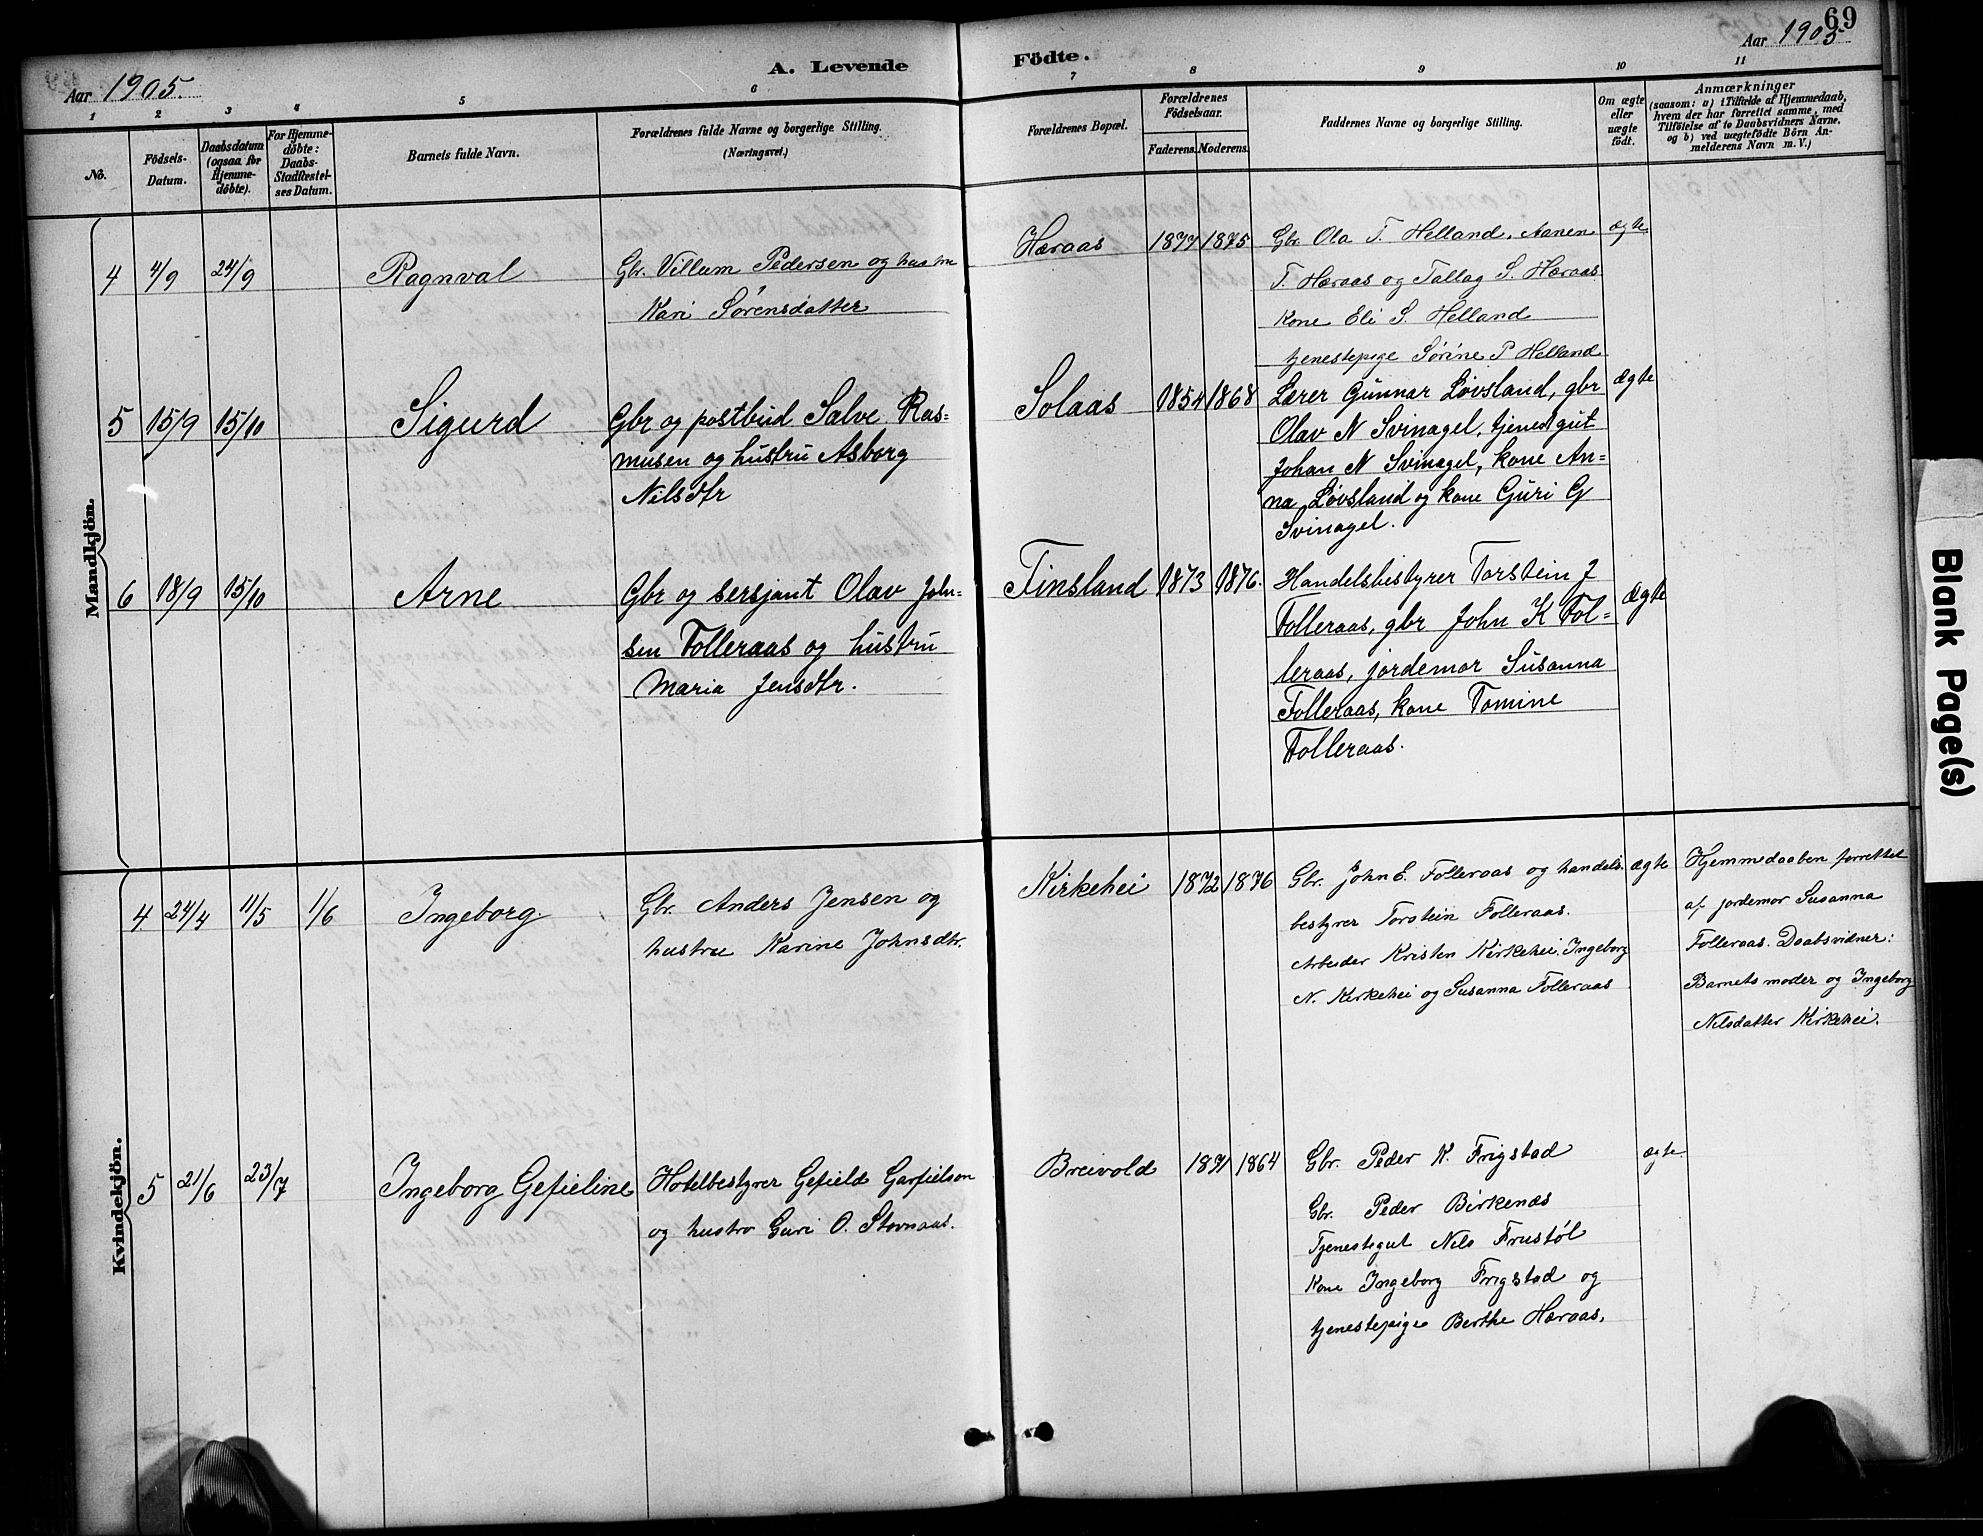 69
Aar 1905.
A. Levende
Födte.
Aar 1905
1 2 3 4 5 6 7 8 9 10 11
No.
Födsels-
Datum.
Daabsdatum
(ogsaa for
Hjemme-
döbte).
For Hjemme-
döbte:
Daabs-
Stadfæstel-
ses Datum.
Barnets fulde Navn.
Forældrenes fulde Navne og borgerlige Stilling.
(Næringsvei.)
Forældrenes Bopæl.
Forældrenes
Födselsaar.
Faderens. Moderens.
Faddernes Navne og borgerlige Stilling.
Om ægte
eller
uægte
födt.
Anmærkninger
(saasom: a) i Tilfælde af Hjemmedaab,
hvem der har forrettet samme, med
Tilföielse af to Daabsvidners Navne.
og b) ved uægtefödte Börn An-
melderens Navn m. V.)
Mandkjön.
4 4/9 24/9 Ragnval
Gbr. Villum Pedersen og hustru
Kari Sørensdatter
Hæraas 1877 1875
Gbr. Ola T. Helland, Aanen
T. Hæraas og Tallag S. Hæraas
Kone Eli S. Helland
tjenestepige Sørine P Helland
ægte
5 15/9 15/10 Sigurd
Gbr og postbud Salve Ras=
musen og hustru Asborg
Nilsdtr
Solaas 1854 1868
Lærer Gunnar Løvsland, gbr
Olav N Svinagel, tjenestgut
Johan N Svinagel, kone An=
na Løvsland og kone Guri G
Svinagel.
ægte
6 18/9 15/10 Arne
Gbr og sersjant Olav John=
sen Folleraas og hustru
Maria Jensdtr.
Finsland 1873 1876.
Handelsbestyrer Torstein J
Folleraas, gbr John K Fol=
leraas, jordemor Susanna
Folleraas, kone Tomine
Folleraas.
Ægte
Kvindekjön.
4 24/4 11/5 1/6 Ingeborg.
Gbr. Anders Jensen og
hustru Karine Johnsdtr.
Kirkehei 1872 1876
Gbr. John E. Folleraas og handels
bestyrer Torstein Folleraas.
Arbeider Kristen Kirkehei, Ingeborg
N. Kirkehei og Susanna Folleraas
ægte
Hjemmedaaben forrettet
af jordemor Susanna
Folleraas. Daabsvidner:
Barnets moder og Ingeborg
Nilsdatter Kirkehei.
5 21/6 23/7 Ingeborg Gefieline
Hotelbestyrer Gefield Garfielson
og hustro Guri O. Stovnaas.
Breivold 1871 1864
Gbr. Peder K. Frigstad
Gbr. Peder Birkenæs
Tjenestegut Nils Frustøl
Kone Ingeborg Frigstad og
tjenestepige Berthe Hæraas.
ægte
Blank Page(s)